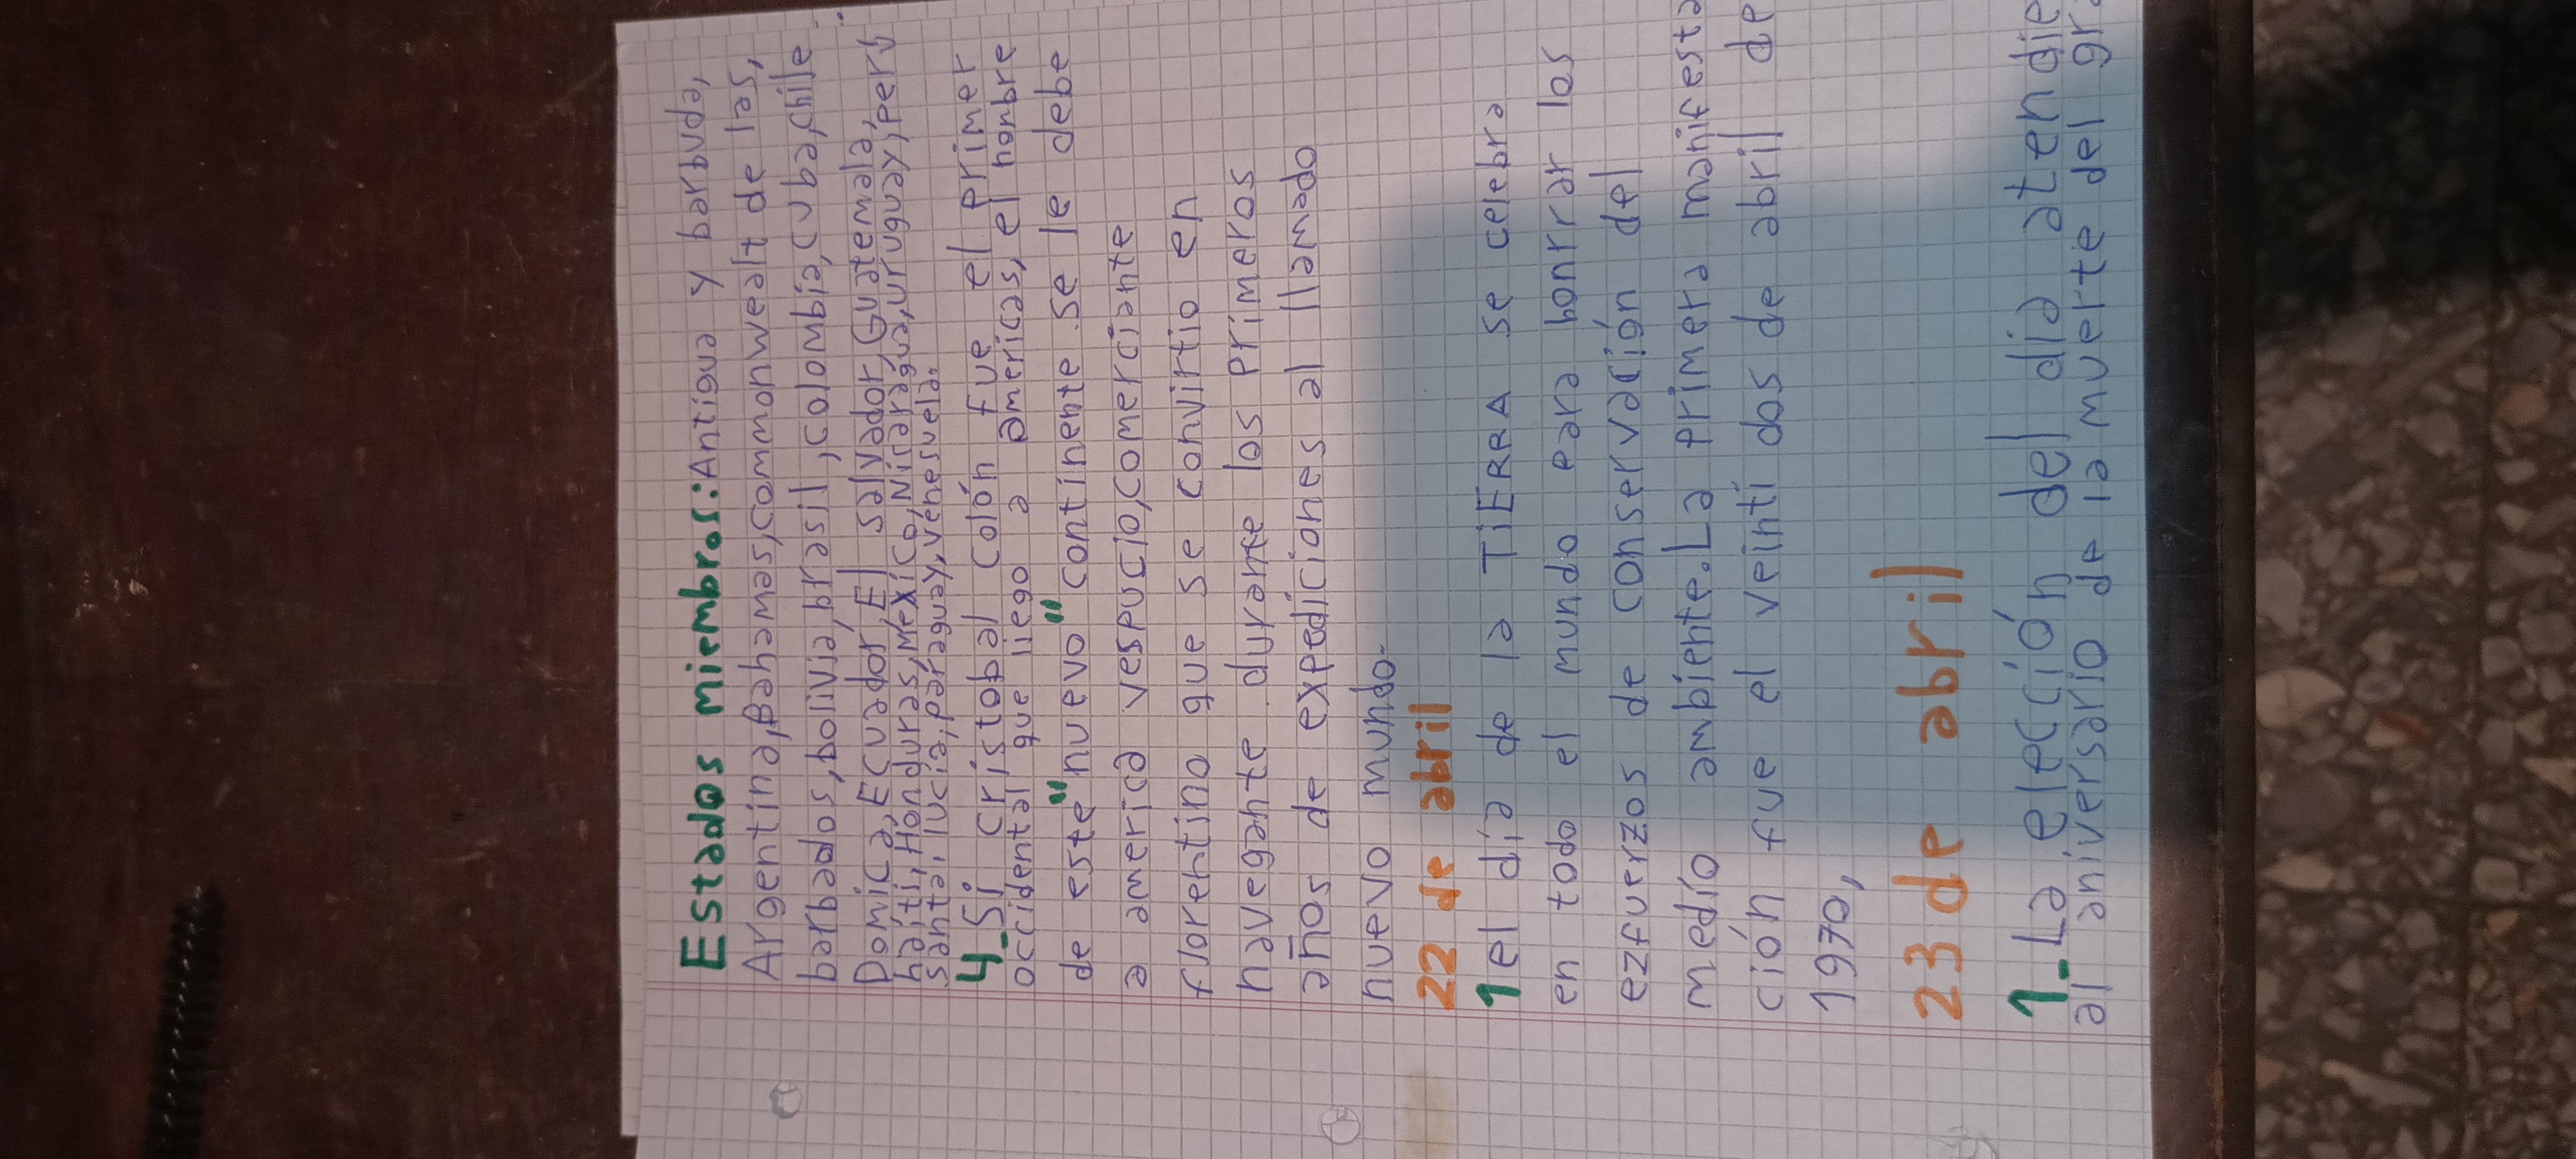 Estados miembros: Antigua y barbuda,
Argentina, Bahamas, Commonwealt de las,
barbados, bolivia, brasil, colombia, cuba, chile
Domica, ECuador, El salvador, Guatemala,
haiti, Honduras, MexiCo, Nicaragua, uruguay, perú
santa, lucia, paraguay, venesuela.
4_Si cristobal colón fue el primer
occidental que llego a americas, el nonbre
de este "nuevo" continente se le debe
a america vespucio, comerciante
florentino que se convirtio en
navegante durante los primeros
años de expediciones al llamado
nuevo mundo.
22 de abril
1 el día de la TiERRA se celebra
en todo el mundo para honrrar los
ezfuerzos de conservación del
medio ambiente. La primera manifesta
ción fue el veinti dos de abril de
1970,
23 de abril
1-La elección del dia atendie
al aniversario de la muerte del gra